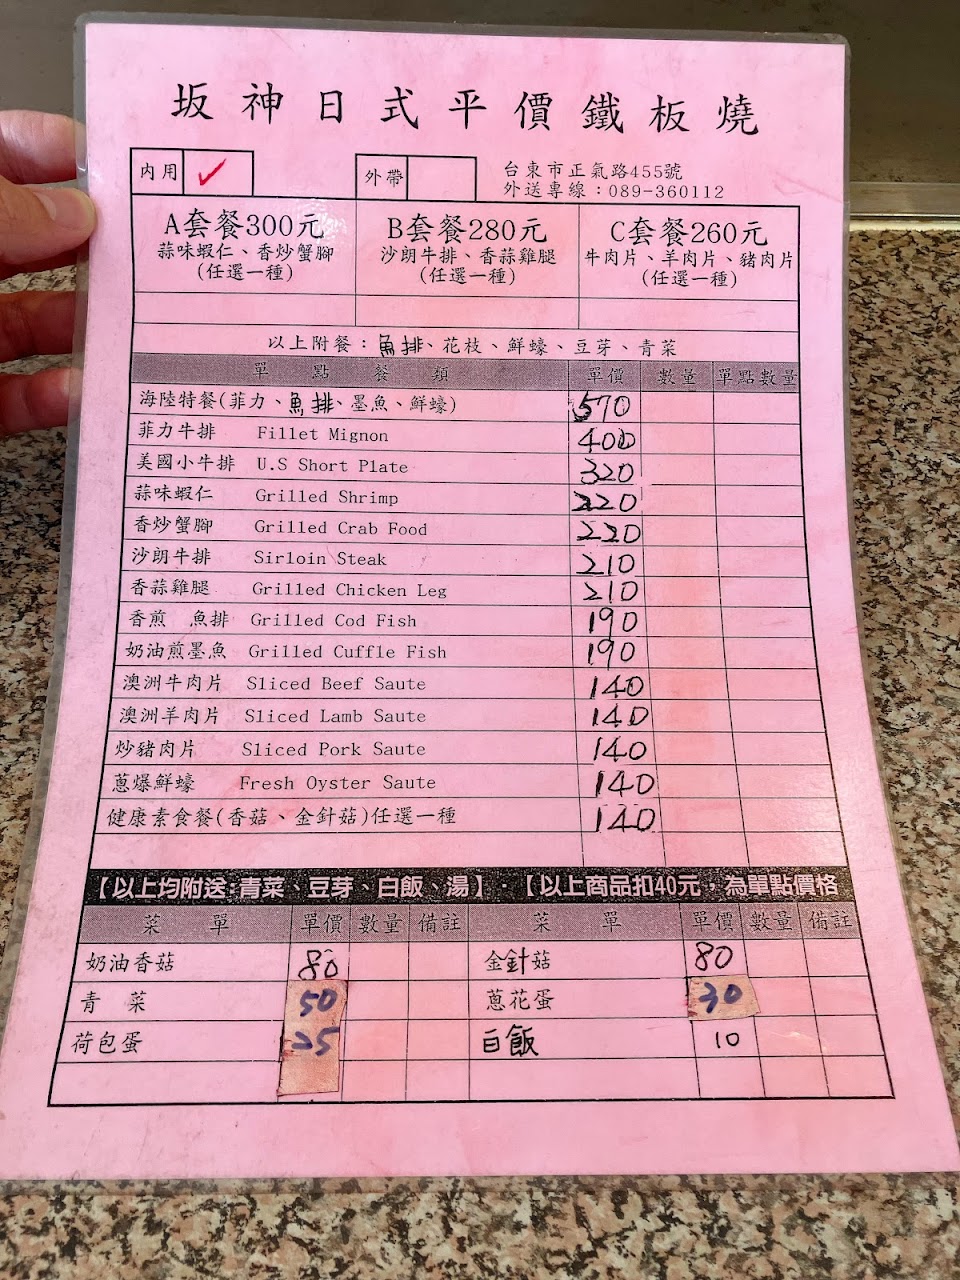 坂神日式平價鐵板燒
內用 ✓ 外帶 台東市正氣路455號
外送專線：089-360112
A套餐300元 B套餐280元 C套餐260元
蒜味蝦仁、香炒蟹腳 沙朗牛排、香蒜雞腿 牛肉片、羊肉片、豬肉片
(任選一種) (任選一種) (任選一種)
以上附餐：魚排、花枝、鮮蠔、豆芽、青菜
單點餐類 單價 數量 單點數量
海陸特餐(菲力、魚排、墨魚、鮮蠔) 570
菲力牛排 Fillet Mignon 400
美國小牛排 U.S Short Plate 320
蒜味蝦仁 Grilled Shrimp 220
香炒蟹腳 Grilled Crab Food 220
沙朗牛排 Sirloin Steak 210
香蒜雞腿 Grilled Chicken Leg 210
香煎 魚排 Grilled Cod Fish 190
奶油煎墨魚 Grilled Cuffle Fish 190
澳洲牛肉片 Sliced Beef Saute 140
澳洲羊肉片 Sliced Lamb Saute 140
炒豬肉片 Sliced Pork Saute 140
蔥爆鮮蠔 Fresh Oyster Saute 140
健康素食餐(香菇、金針菇)任選一種 140
【以上均附送:青菜、豆芽、白飯、湯】·【以上商品扣40元，為單點價格
菜單 單價 數量 備註 菜單 單價 數量 備註
奶油香菇 80 金針菇 80
青菜 50 蔥花蛋 30
荷包蛋 25 白飯 10